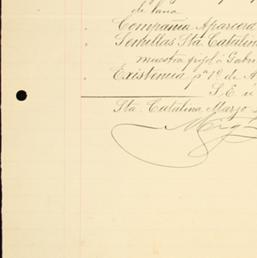 de lana
Compañia Aparcera
Semillas Sta. Catalin
muestra frijol á Gabri
Existencia pª 1º de A
S. E. ú
Sta. Catalina Marzo
Mig